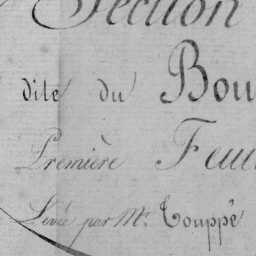 Section
dite du Bou
Première Feui
Levée par Mr. Touppé